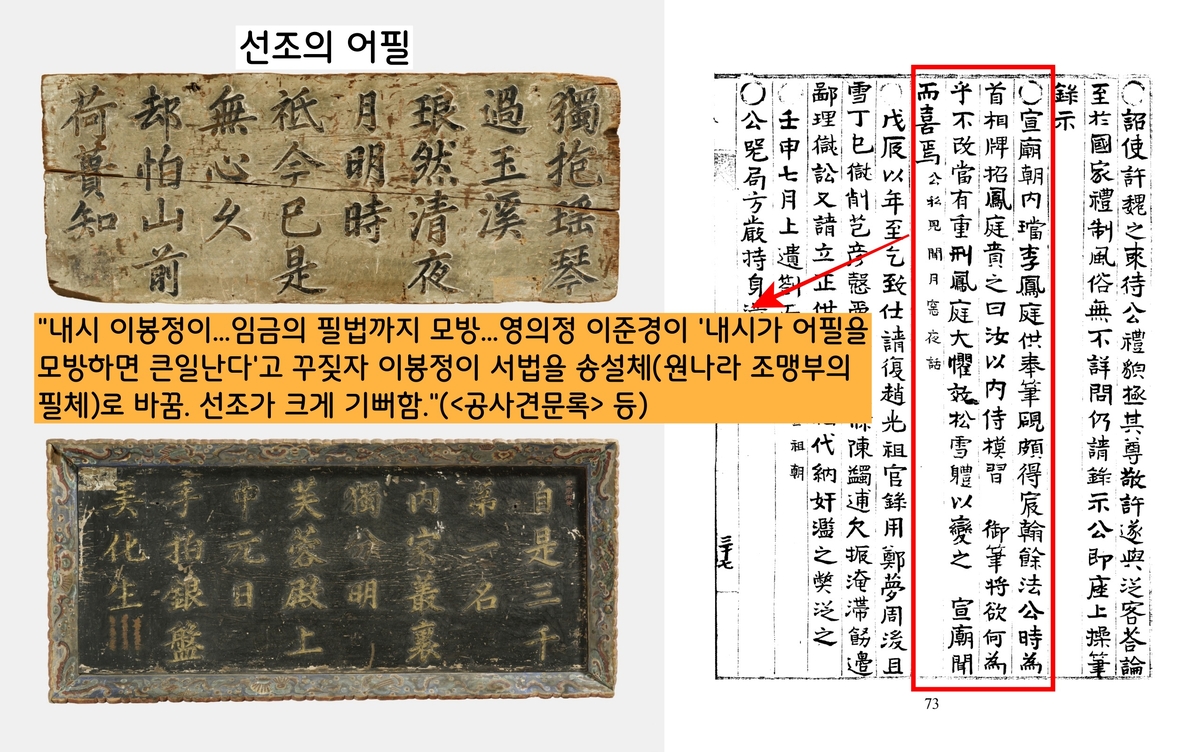 선조의 어필
獨抱瑶琴
過玉溪
琅然清夜
月明時
祇今已是
無心久
却怕山前
荷蕢知
"내시 이봉정이...임금의 필법까지 모방...영의정 이준경이 '내시가 어필을
모방하면 큰일난다'고 꾸짖자 이봉정이 서법을 송설체(원나라 조맹부의
필체)로 바꿈. 선조가 크게 기뻐함."(<공사견문록> 등)
自是三千
第一名
内家叢裏
獨分明
芙蓉殿上
中元日
手拍銀盤
美化生
○詔使許魏之來待公禮貌極其尊敬許遂與泛客答論
至於國家禮制風俗無不詳問仍請錄示公即座上操筆
錄示
○宣廟朝内璫李鳳庭供奉筆硯頗得宸翰餘法公時為
首相牌招鳳庭責之曰汝以内侍模習 御筆將欲何為
乎不改當有重刑鳳庭大懼效松雪軆以變之 宣廟聞
而喜焉 公私見聞月窓夜話
○戊辰以年至乞致仕請復趙光祖官錄用鄭夢周後且
雪丁巳獄削芑彦慤
陳蠲逋欠振淹滯飭邊
鄙理獄訟又請立正供
代納奸濫之獘泛之
祖朝
○壬申七月上遺劄
○公器局方嚴持身
三十七
73